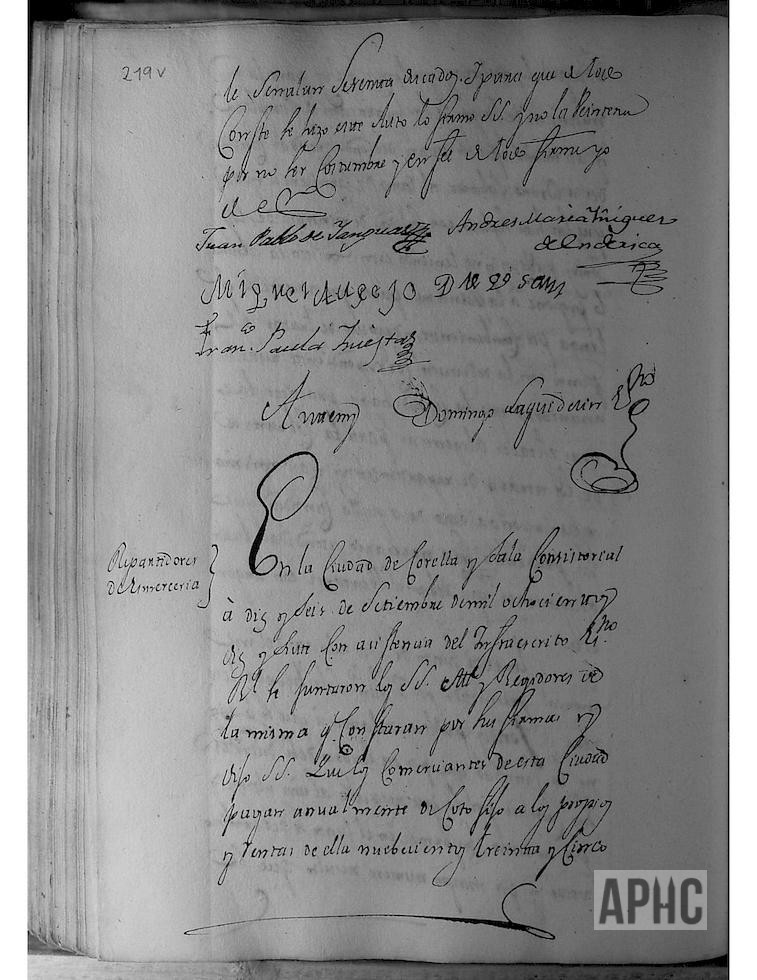 219v
le señalan setenta ducados. Y para que de todo
Conste se hizo este Auto lo firmo SS. y no la Veintena
por no ser Costumbre y en fee de todo firme yo
el e
Juan Pablo de Andres Maria Iñiguez
de Enderica
Miguel
Fran.co Paula
Antemi Domingo Laquidain Esno
Repartidores
de Merceria
En la Ciudad de Corella y Sala Consistorial
à diez y seis de Setiembre de mil ochocientos
diez y siete Con asistencia del Infraescrito Esno
Rl se juntaron los SS. Alle y Regidores de
la misma q. Constaran por sus firmas y
dijo SS. Que los Comerciantes de esta Ciudad
pagan anualmente de Coto fijo a los propios
y rentas de ella nuebecientos treinta y Cinco
APHC